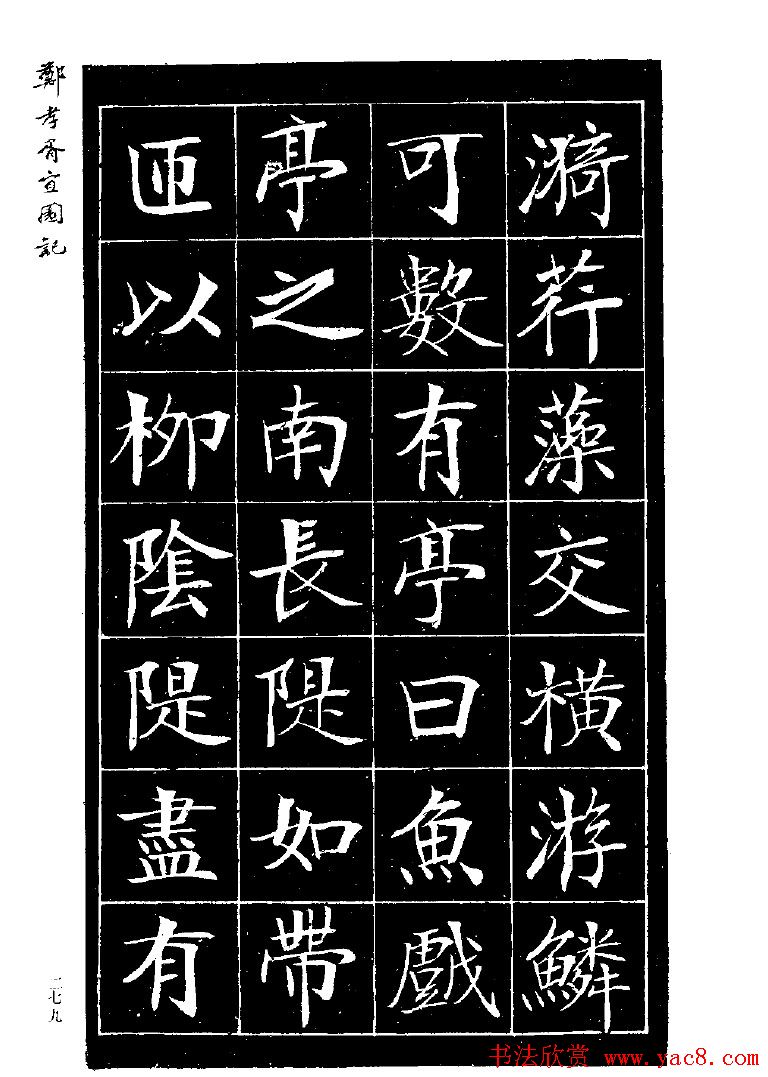 鄭孝胥宜園記
漪荇藻交橫游鱗
可數有亭曰魚戲
亭之南長隄如帶
匝以柳陰隄盡有
二七九
书法欣赏 www.yac8.com